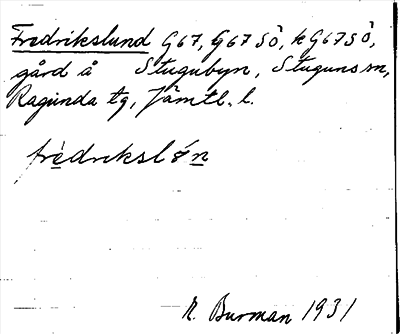 Fredrikslund G67, G67SÖ, k G67SÖ,
gård å Stugubyn, Stuguns sn,
Ragunda tg, Jämtl. l.
frèdrikslǿn
R. Burman 1931